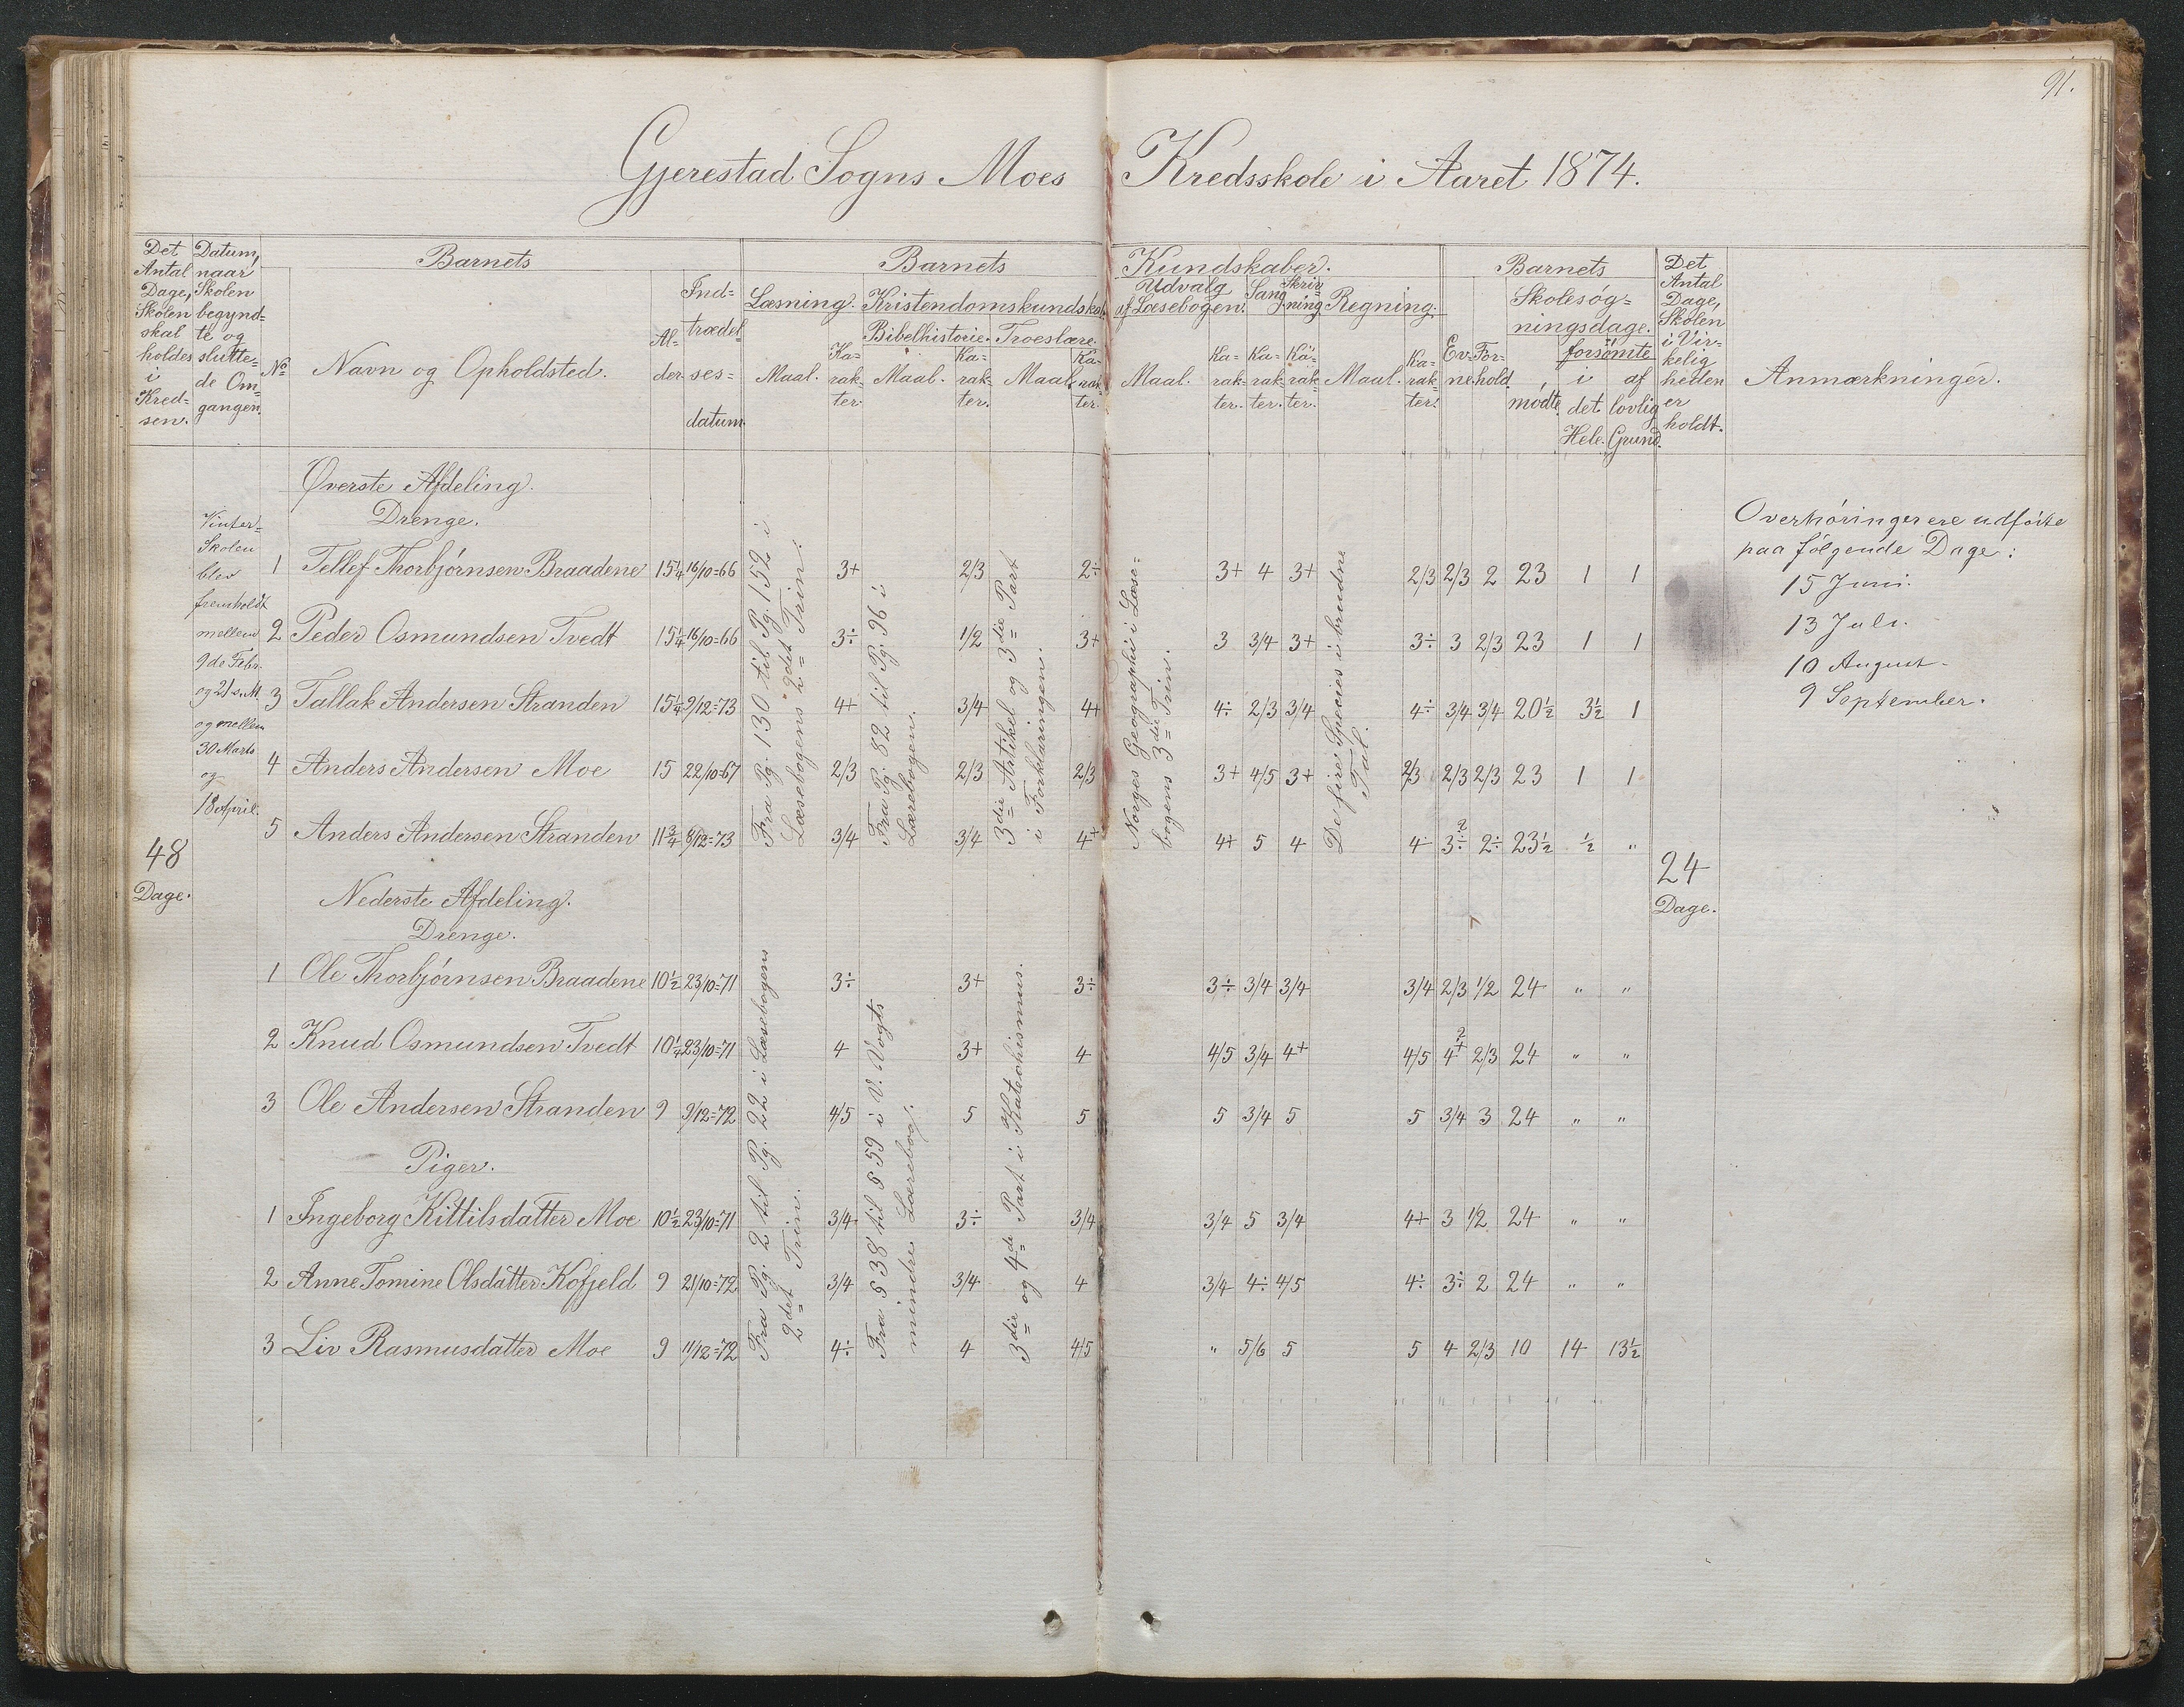 91.
Gjerestad Sogns Moes Kredsskole i Aaret 1874.
Det Antal Dage, Skolen skal holdes i Kred= sen.
Datum, naar Skolen begynd= te og slutte= de Om= gangen.
Barnets
No
Navn og Opholdsted.
Al= der.
Ind= trædel= ses= datum.
Barnets Kundskaber.
Læsning.
Maal.
Ka= rak= ter.
Kristendomskundskab.
Bibelhistorie.
Maal.
Ka= rak= ter.
Troeslære.
Maal.
Ka= rak= ter.
Udvalg af Læsebogen.
Maal.
Ka= rak= ter.
Sang
Ka= rak= ter.
Skriv= ning.
Ka= rak= ter.
Regning.
Maal.
Ka= rak= ter.
Barnets
Ev= ne.
For= hold.
Skolesøg= ningsdage.
mødte.
forsømte
i det Hele.
af lovlig Grund.
Det Antal Dage, Skolen i Vir= kelig heden er holdt.
Anmærkninger.
48 Dage.
Vinter= Skolen blev fremholdt mellem 9de Febr. og 21 s. M. og mellem 30 Marts og 18 April.
Øverste Afdeling.
Drenge.
1 Tellef Thorbjørnsen Braadene 15 1/4 16/10=66 3+ 2/3 2÷ 3+ 4 3+ 2/3 2/3 2 23 1 1
2 Peder Osmundsen Tvedt 15 1/4 16/10=66 3÷ 1/2 3+ 3 3/4 3+ 3÷ 3 2/3 23 1 1
3 Tallak Andersen Stranden 15 1/4 9/12=73 4+ 3/4 4+ 4÷ 2/3 3/4 4÷ 3/4 3/4 20 1/2 3 1/2 1
4 Anders Andersen Moe 15 22/10=67 2/3 2/3 2/3 3+ 4/5 3+ 2/3 2/3 2/3 23 1 1
5 Anders Andersen Stranden 11 3/4 8/12=73 3/4 3/4 4+ 4+ 5 4 4÷ 3÷ 2÷ 23 1/2 1/2 "
Fra Pg. 130 til Pg. 152 i Læsebogens 2det Trin.
Fra Pg. 82 til Pg. 96 i Lærebogen.
3die Artikel og 3die Part i Forklaringen.
Norges Geographi i Læse= bogens 3die Trin.
De fire Species i brudne Tal.
24 Dage.
Overhøringer ere udførte
paa følgende Dage:
15 Juni.
13 Juli.
10 August.
9 September.
Nederste Afdeling.
Drenge.
1 Ole Thorbjørnsen Braadene 10 1/2 23/10=71 3÷ 3+ 3÷ 3÷ 3/4 3/4 3/4 2/3 1/2 24 " "
2 Knud Osmundsen Tvedt 10 1/4 23/10=71 4 3+ 4 4/5 3/4 4+ 4/5 4+ 2/3 24 " "
3 Ole Andersen Stranden 9 9/12=72 4/5 5 5 5 3/4 5 5 3/4 3 24 " "
Piger.
1 Ingeborg Kittilsdatter Moe 10 1/2 23/10=71 3/4 3÷ 3/4 3/4 5 3/4 4+ 3 1/2 24 " "
2 Anne Tomine Olsdatter Kofjeld 9 21/10=72 3/4 3/4 4 3/4 4÷ 4/5 4÷ 3÷ 2 24 " "
3 Liv Rasmusdatter Moe 9 11/12=72 4÷ 4 4/5 " 5/6 5 5 4 2/3 10 14 13 1/2
Fra Pg. 2 til Pg. 22 i Læsebogens 2det Trin.
Fra § 38 til § 59 i V. Vogts mindre Lærebog.
3die og 4de Part i Katechismus.